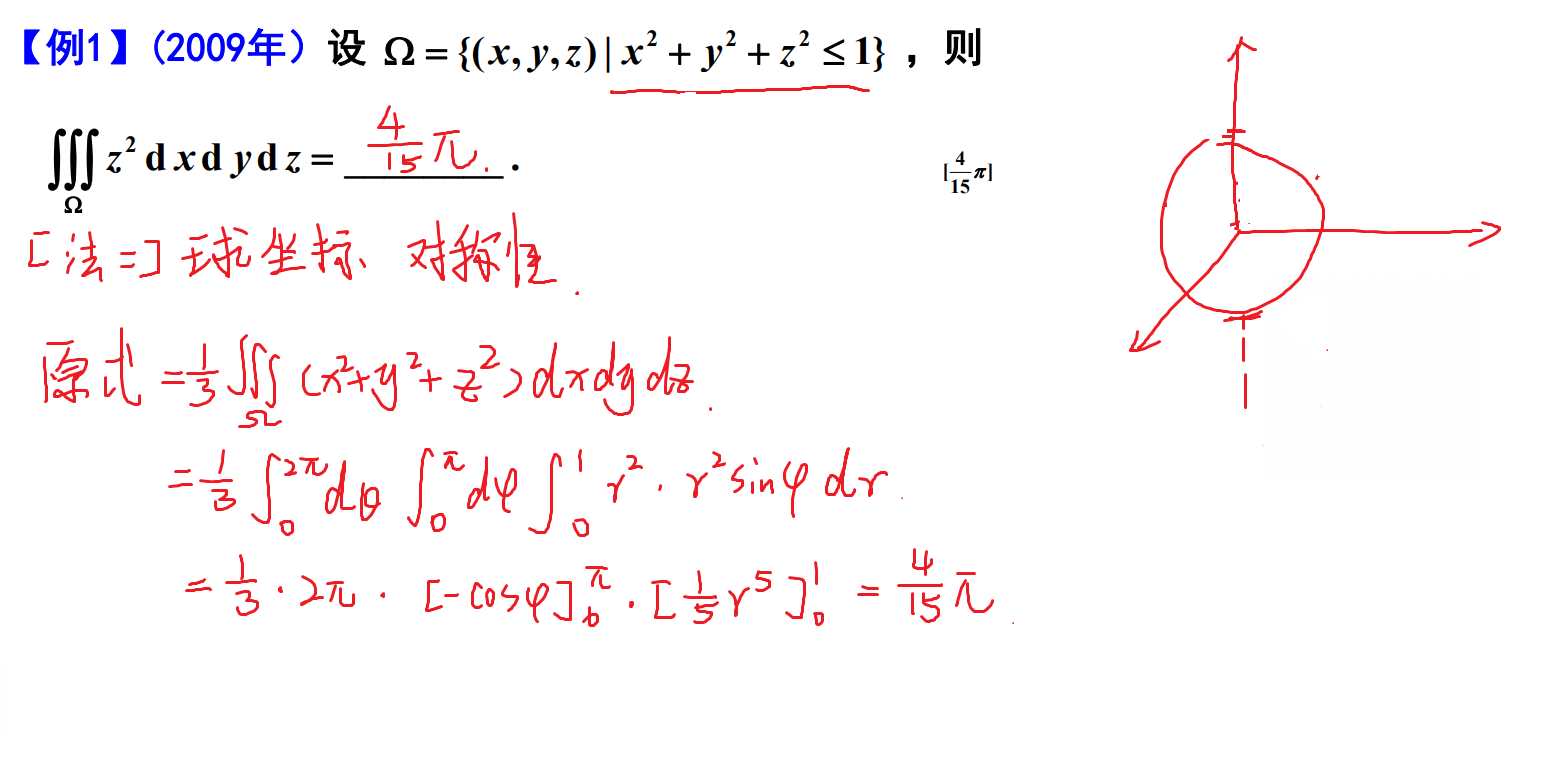 【例1】(2009年) 设 Ω = {(x, y, z) | x² + y² + z² ≤ 1} ，则
∭_Ω z² d x d y d z = 4/15 π .
[4/15 π]
[法二] 球坐标、对称性.
原式 = 1/3 ∭_Ω (x²+y²+z²) dxdydz.
= 1/3 ∫_0^{2π} dθ ∫_0^π dφ ∫_0^1 r² · r² sinφ dr.
= 1/3 · 2π · [-cosφ]_0^π · [1/5 r⁵]_0^1 = 4/15 π.